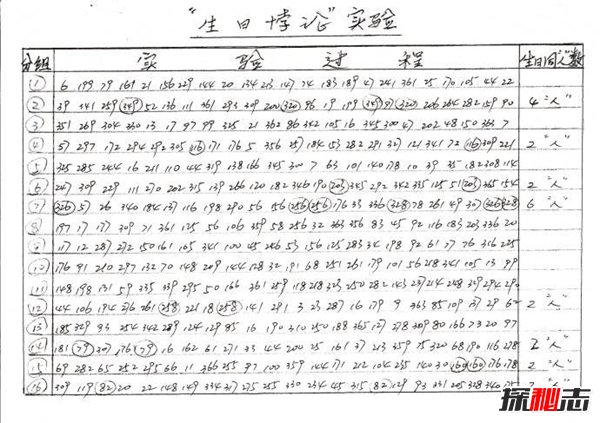 "生日悖论"实验
分组 实验过程 生日同"人"数
① 6 199 79 161 21 156 229 144 20 134 213 147 74 183 189 47 241 361 25 170 105 44 22
② 39 341 259 349 52 136 111 361 293 309 200 320 96 19 199 349 91 320 206 264 282 159 90 4 "人"
③ 351 269 304 330 13 17 97 99 325 21 362 86 342 105 16 345 300 47 202 48 150 363 7
④ 51 297 172 294 292 305 16 171 176 5 356 251 184 53 282 291 321 121 341 72 16 309 221 2 "人"
⑤ 325 285 264 16 211 110 44 319 138 166 345 300 7 63 101 140 178 10 39 35 182 308 114
⑥ 247 309 229 111 270 202 315 139 266 120 182 346 190 203 345 292 342 335 125 51 203 365 154 2 "人"
⑦ 326 51 26 340 184 137 116 198 290 56 156 256 256 176 33 336 328 78 261 49 301 326 328 6 "人"
⑧ 197 17 177 309 71 361 125 56 106 359 58 256 32 363 356 83 45 92 116 183 203 336 20
⑨ 117 12 287 272 150 161 105 341 100 45 246 53 156 125 283 34 198 92 61 77 76 316 225
⑩ 176 91 210 297 132 70 148 209 144 128 32 191 68 251 261 179 101 56 218 341 105 13 99
⑪ 148 198 131 59 335 339 295 50 166 361 259 118 218 323 250 282 143 237 214 248 329 294 29
⑫ 44 106 194 276 261 258 221 18 258 141 291 3 23 287 16 179 9 363 85 109 137 29 62 2 "人"
⑬ 185 329 93 254 342 289 124 129 85 16 190 310 250 188 365 127 278 309 80 166 73 20 97
⑭ 181 79 301 176 79 16 162 61 271 33 44 200 25 161 37 213 359 75 320 68 190 116 178 2 "人"
⑮ 69 282 65 252 295 66 11 366 255 97 100 359 144 171 212 104 235 140 30 160 160 116 278 2 "人"
⑯ 309 119 82 20 22 148 149 334 31 275 255 330 234 45 315 82 129 93 331 205 328 340 "人"
探秘志